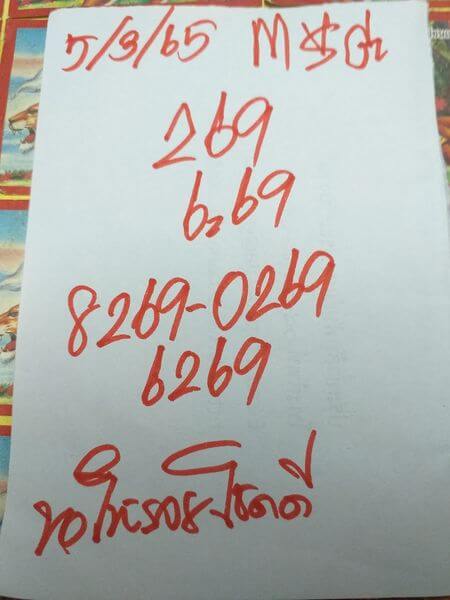 5/3/65
269
6269
8269-0269
6269
ขอให้รวยโชคดี